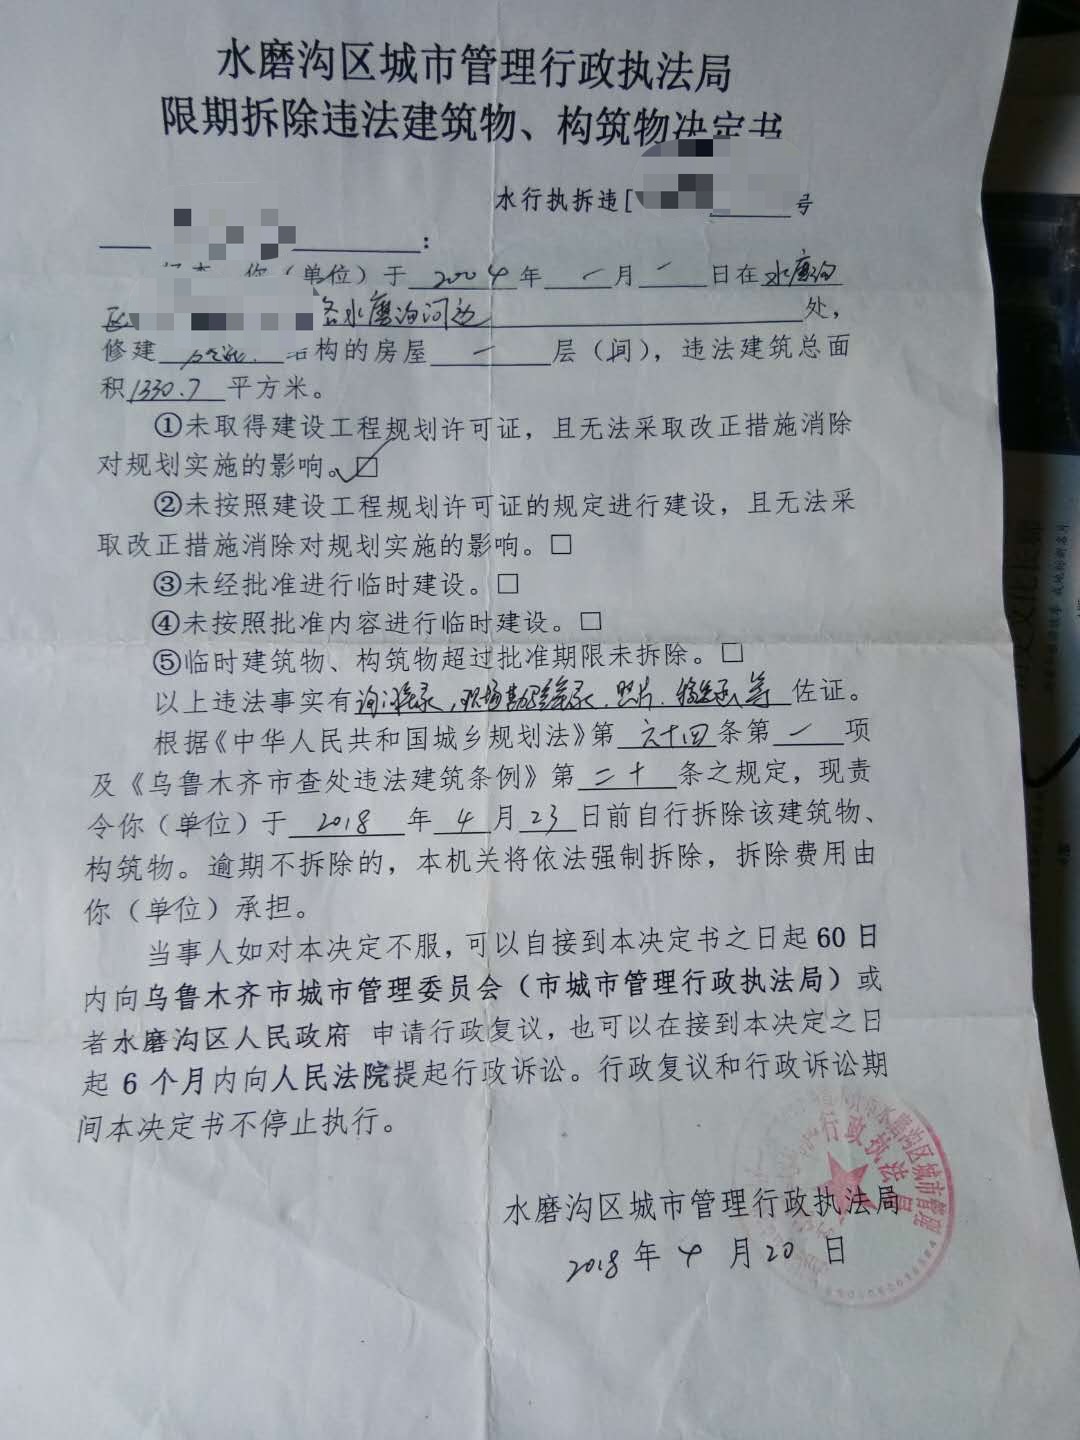 水磨沟区城市管理行政执法局
限期拆除违法建筑物、构筑物决定书
水行执拆违[ 号
:
你(单位)于 2004 年 一 月 一 日在 水磨沟
区 水磨沟河边 处,
修建 结构的房屋 一 层(间),违法建筑总面
积 1330.7 平方米。
①未取得建设工程规划许可证,且无法采取改正措施消除
对规划实施的影响。☑
②未按照建设工程规划许可证的规定进行建设,且无法采
取改正措施消除对规划实施的影响。□
③未经批准进行临时建设。□
④未按照批准内容进行临时建设。□
⑤临时建筑物、构筑物超过批准期限未拆除。□
以上违法事实有 询问笔录、现场勘验笔录、照片、 等 佐证。
根据《中华人民共和国城乡规划法》第 六十四 条第 一 项
及《乌鲁木齐市查处违法建筑条例》第 二十 条之规定,现责
令你(单位)于 2018 年 4 月 23 日前自行拆除该建筑物、
构筑物。逾期不拆除的,本机关将依法强制拆除,拆除费用由
你(单位)承担。
当事人如对本决定不服,可以自接到本决定书之日起 60 日
内向乌鲁木齐市城市管理委员会(市城市管理行政执法局)或
者水磨沟区人民政府 申请行政复议,也可以在接到本决定之日
起 6 个月内向人民法院提起行政诉讼。行政复议和行政诉讼期
间本决定书不停止执行。
水磨沟区城市管理行政执法局
2018 年 4 月 20 日
市水磨沟区城市管理
行政执法局